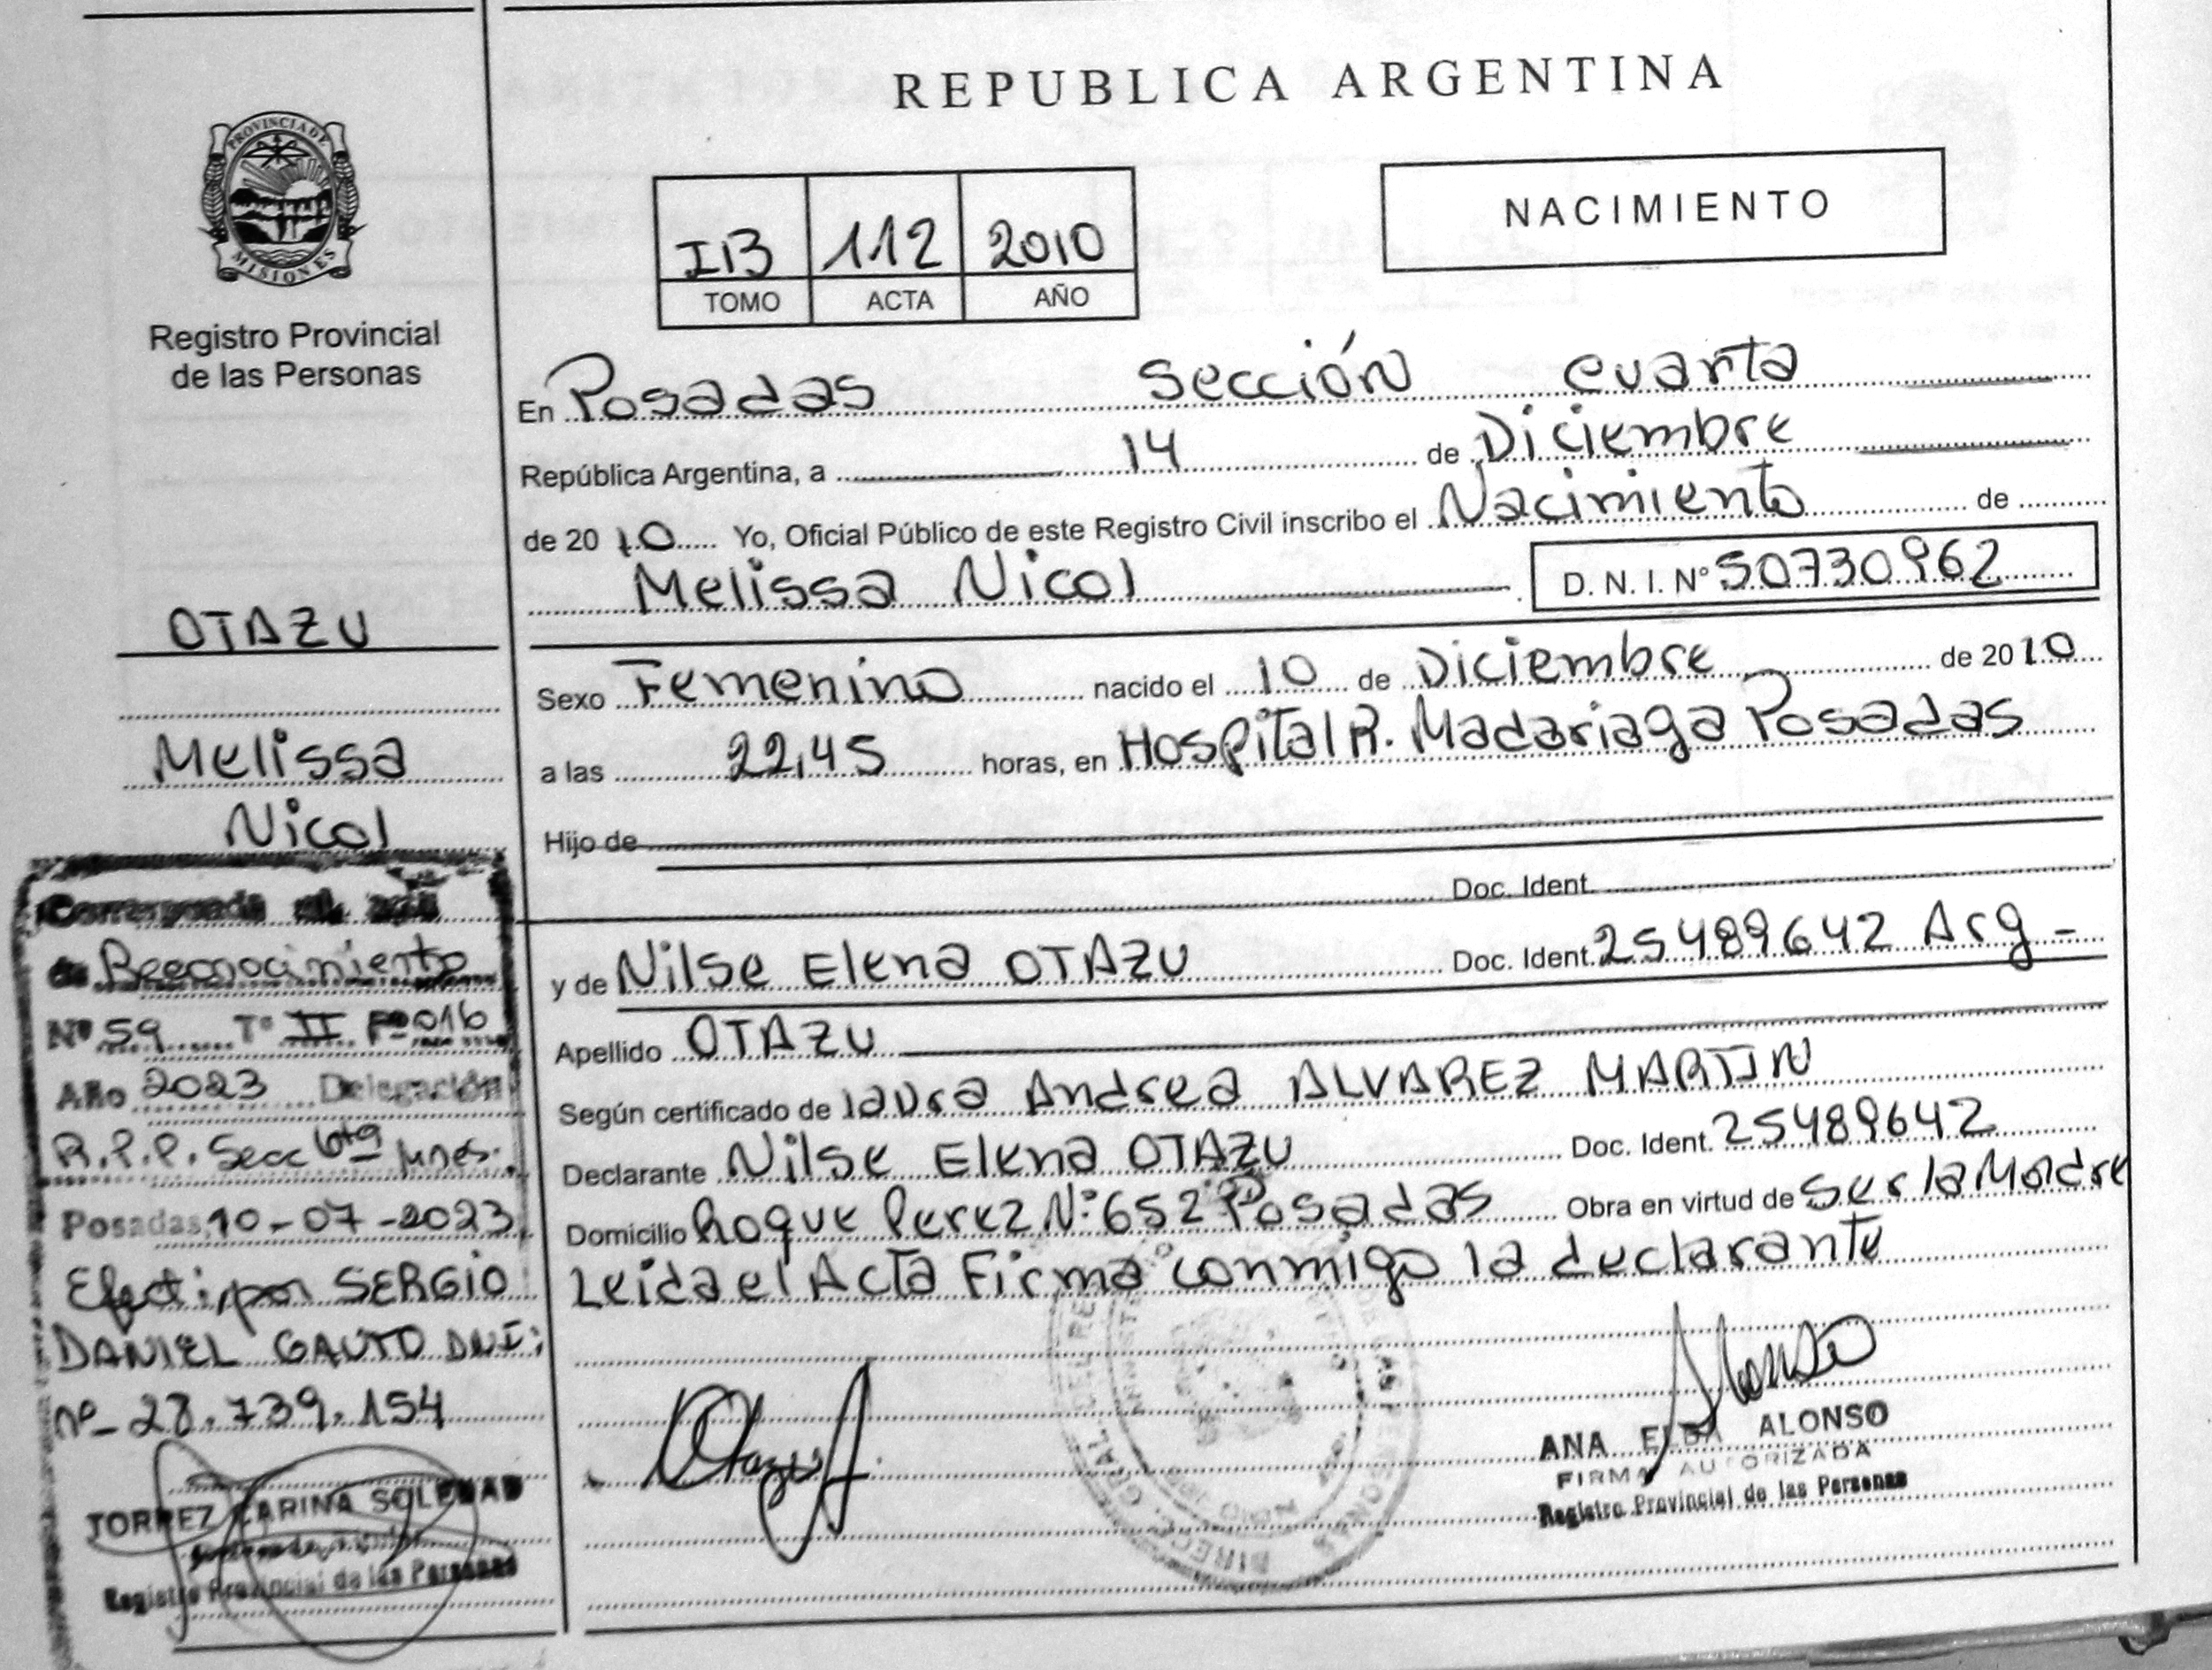 REPUBLICA ARGENTINA
PROVINCIA DE
MISIONES
Registro Provincial
de las Personas
NACIMIENTO
IB 112 2010
TOMO ACTA AÑO
En Posadas Sección cuarta
República Argentina, a 14 de Diciembre
de 2010 Yo, Oficial Público de este Registro Civil inscribo el Nacimiento de
Melissa Nicol D. N. I. N° 50730962
OTAZU
Melissa
Nicol
Sexo Femenino nacido el 10 de Diciembre de 2010
a las 22,45 horas, en Hospital R. Madariaga Posadas
Hijo de
Doc. Ident.
y de Nilse Elena OTAZU Doc. Ident. 25489642 Arg -
Apellido OTAZU
Según certificado de laura Andrea ALVAREZ MARTIN
Declarante Nilse Elena OTAZU Doc. Ident. 25489642
Domicilio Roque Perez N° 652 Posadas Obra en virtud de Ser la Madre
Leida el Acta Firma conmigo la declarante
Corresponde al acta
de Reconocimiento
Nº 59 Tº II Fº 016
Año 2023 Delegación
R.P.P. Secc 6ta
Posadas, 10-07-2023
Efect. por SERGIO
DANIEL GAUTO DNI:
nº- 28.739.154
TORREZ CARINA SOLEDAD
Registro Provincial de las Personas
Otazu
ANA ELBA ALONSO
FIRMA AUTORIZADA
Registro Provincial de las Personas